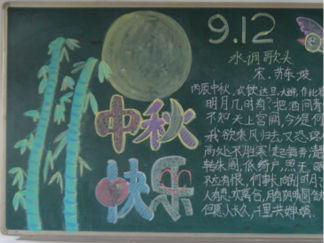 9.12
水调歌头
宋.苏东坡
丙辰中秋,欢饮达旦,大醉,作此
明月几时有?把酒问青
不知天上宫阙,今是何
我欲乘风归去,又恐琼
高处不胜寒,起舞弄清
转朱阁,低绮户,照无眠
不应有恨,何事长向别时
人有悲欢离合,月有阴晴圆缺
但愿人长久,千里共婵娟
中秋
快乐